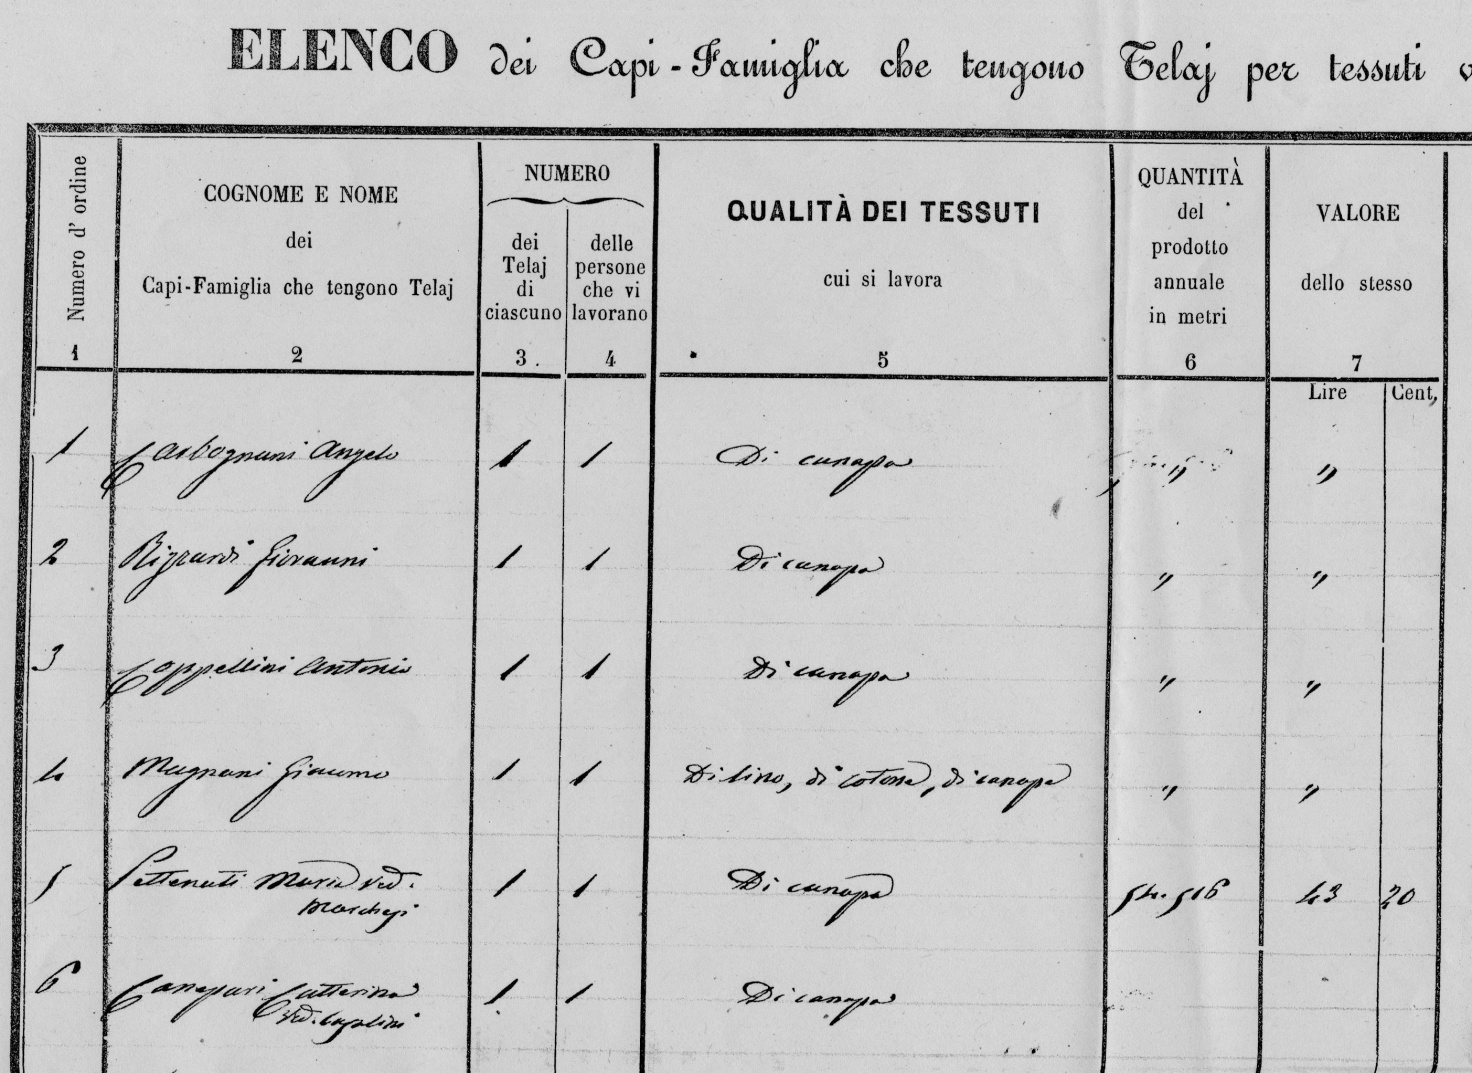 ELENCO dei Capi-Famiglia che tengono Telaj per tessuti
Numero d' ordine
1
COGNOME E NOME
dei
Capi-Famiglia che tengono Telaj
2
NUMERO
dei
Telaj
di
ciascuno
3
delle
persone
che vi
lavorano
4
QUALITÀ DEI TESSUTI
cui si lavora
5
QUANTITÀ
del
prodotto
annuale
in metri
6
VALORE
dello stesso
7
Lire Cent,
1 Carbognani Angelo 1 1 Di canapa " "
2 Rizzardi Giovanni 1 1 Di canapa " "
3 Coppellini Antonio 1 1 Di canapa " "
4 Magnani Giacomo 1 1 Di lino, di cotone, di canapa " "
5 Pettenati Maria ved. 1 1 Di canapa 43 20
Marchesi
6 Canepari Catterina 1 1 Di canapa
ved.